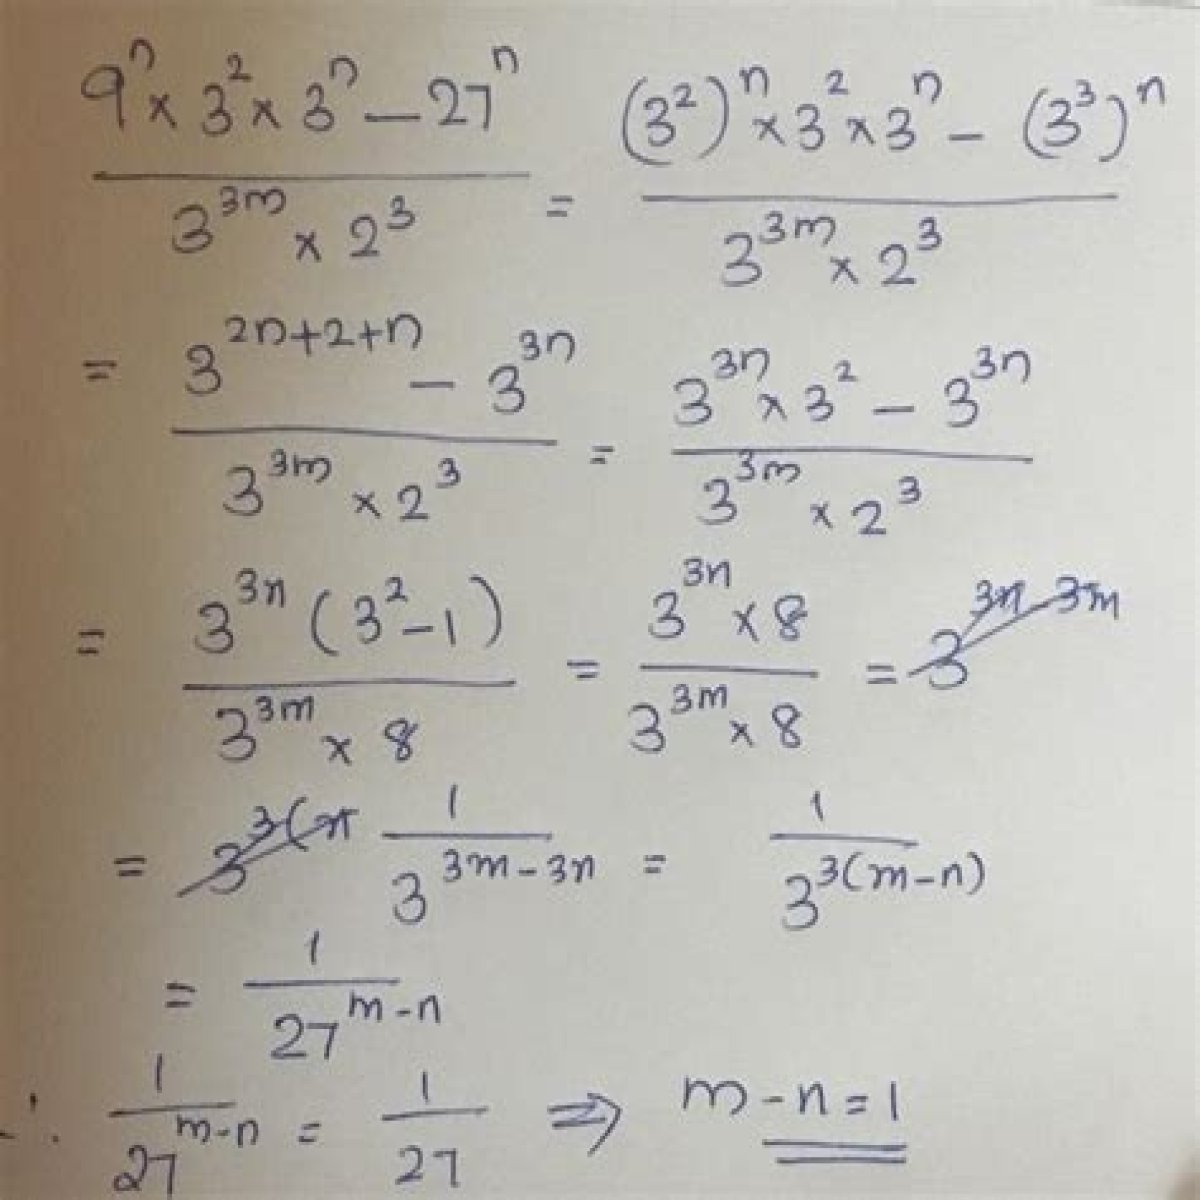 (9^n × 3^2 × 3^n − 27^n) / (3^{3m} × 2^3) = ((3^2)^n × 3^2 × 3^n − (3^3)^n) / (3^{3m} × 2^3)
= (3^{2n+2+n} − 3^{3n}) / (3^{3m} × 2^3) = (3^{3n} × 3^2 − 3^{3n}) / (3^{3m} × 2^3)
= 3^{3n} (3^2 − 1) / (3^{3m} × 8) = (3^{3n} × 8) / (3^{3m} × 8) = 3^{3n-3m}
= 3^{3(n} 1 / 3^{3m−3n} = 1 / 3^{3(m−n)}
= 1 / 27^{m−n}
∴ 1 / 27^{m−n} = 1 / 27 ⇒ m − n = 1